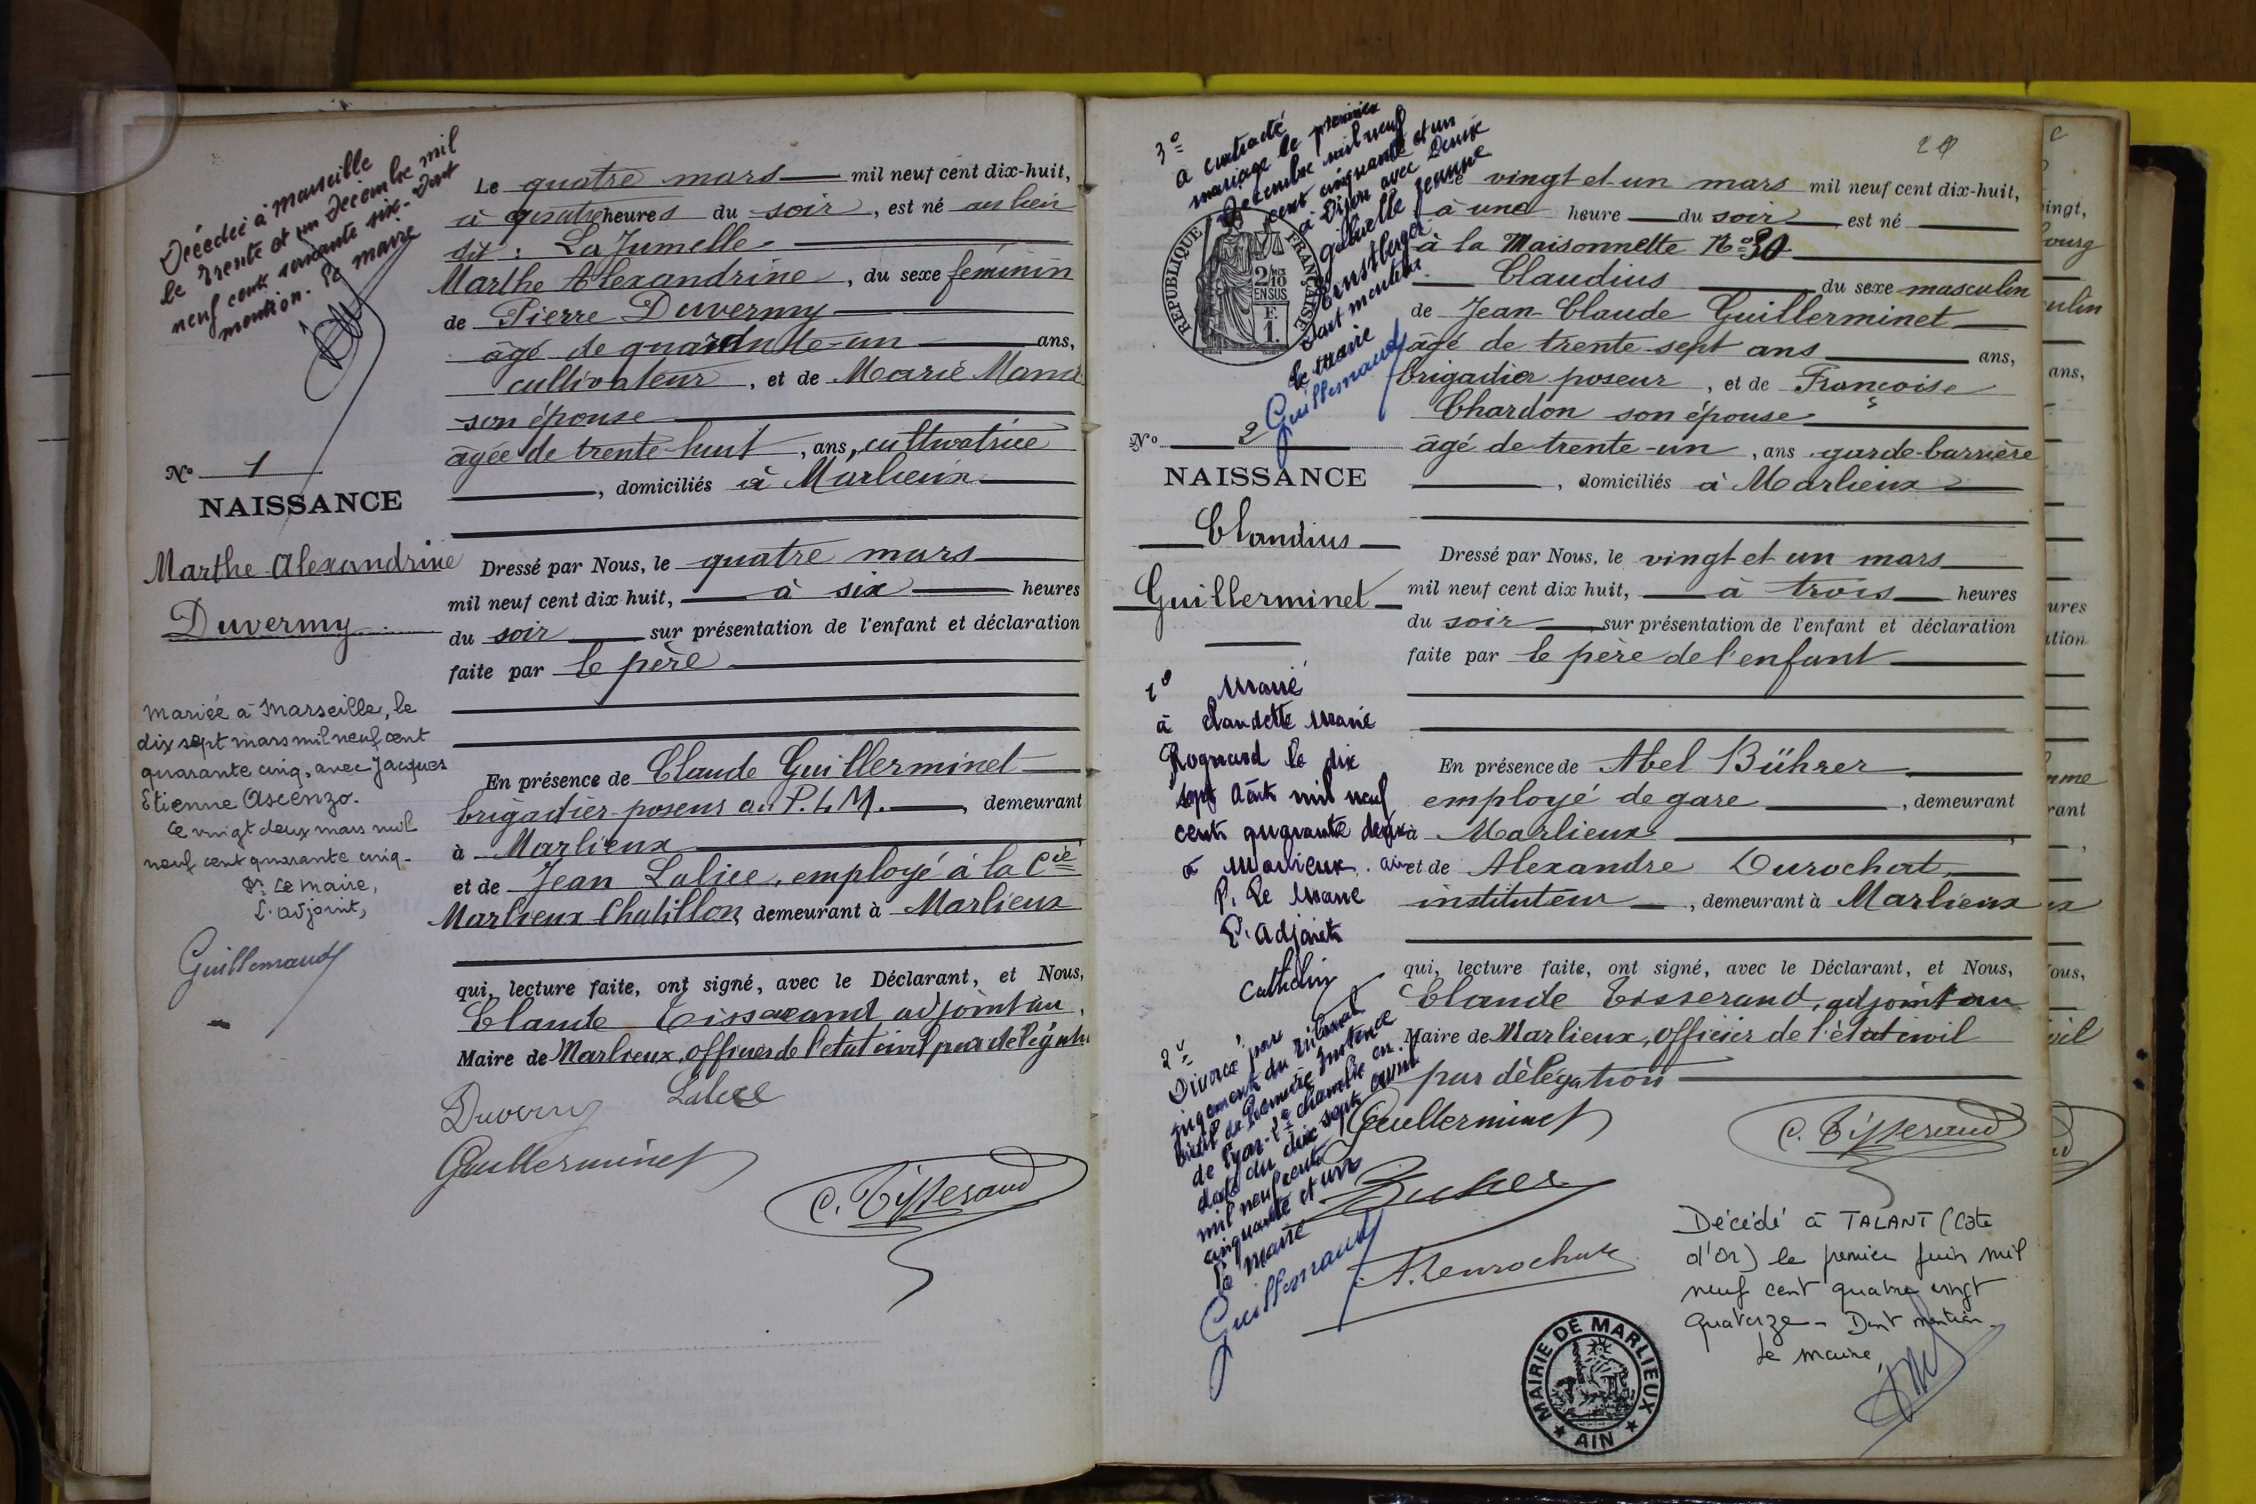 Décédée à Marseille
le trente et un décembre mil
neuf cent soixante six - Dont
mention - Le maire
Le quatre mars mil neuf cent dix-huit,
à quatre heures du soir, est né au lieu
dit : La Jumelle
Marthe Alexandrine, du sexe féminin
de Pierre Duvermy
âgé de quarante-un ans,
cultivateur, et de Marie
son épouse
âgée de trente-huit, ans, cultivatrice
, domiciliés à Marlieux
No 1
NAISSANCE
Marthe Alexandrine
Duvermy
Dressé par Nous, le quatre mars
mil neuf cent dix huit, à six heures
du soir sur présentation de l'enfant et déclaration
faite par le père
Mariée à Marseille, le
dix sept mars mil neuf cent
quarante cinq, avec Jacques
Etienne Ascenzo.
Ce vingt deux mars mil
neuf cent quarante cinq.
Pr Le Maire,
L'adjoint,
Guillemaud
En présence de Claude Guillerminet
brigadier poseur au P.L.M., demeurant
à Marlieux
et de Jean Lalice, employé à la Cie
Marlieux Chatillon, demeurant à Marlieux
qui, lecture faite, ont signé, avec le Déclarant, et Nous,
Claude Tisserand adjoint au
Maire de Marlieux, officier de l'état civil par délégation
Duvermy Lalice
Guillerminet
C. Tisserand
20
3°
a contracté
mariage le premier
décembre mil neuf
cent cinquante et un
à Dijon avec Denise
Gabrielle Jeanne
Ernstberger
Dont mention
Le Maire
Guillemaud
RÉPUBLIQUE FRANÇAISE
2/10
EN SUS
F.
1.
vingt et un mars mil neuf cent dix-huit,
à une heure du soir est né
à la Maisonnette No 30
Claudius du sexe masculin
de Jean-Claude Guillerminet
âgé de trente-sept ans ans,
brigadier poseur, et de Françoise
Chardon son épouse
âgé de trente-un, ans garde-barrière
, domiciliés à Marlieux
No 2
NAISSANCE
Claudius
Guillerminet
Dressé par Nous, le vingt et un mars
mil neuf cent dix huit, à trois heures
du soir, sur présentation de l'enfant et déclaration
faite par le père de l'enfant
1° Marié
à Claudette Marie
Rognard le dix
sept Août mil neuf
cent quarante deux
à Marlieux. Ain
P. Le Maire
L'adjoint
Cathelin
En présence de Abel Bührer
employé de gare, demeurant
à Marlieux
et de Alexandre Durochat,
instituteur, demeurant à Marlieux
qui, lecture faite, ont signé, avec le Déclarant, et Nous,
Claude Tisserand, adjoint au
Maire de Marlieux, officier de l'état civil
par délégation
2°
Divorcé par
jugement du tribunal
civil de Première Instance
de Lyon - 1e chambre en
date du dix sept avril
mil neuf cent
cinquante et un
Le Maire
Guillemaud
Guillerminet
C. Tisserand
Buhrer
A. Durochat
Décédé à TALANT (Côte
d'Or) le premier juin mil
neuf cent quatre vingt
quatorze - Dont mention -
Le Maire,
MAIRIE DE MARLIEUX
★ AIN ★